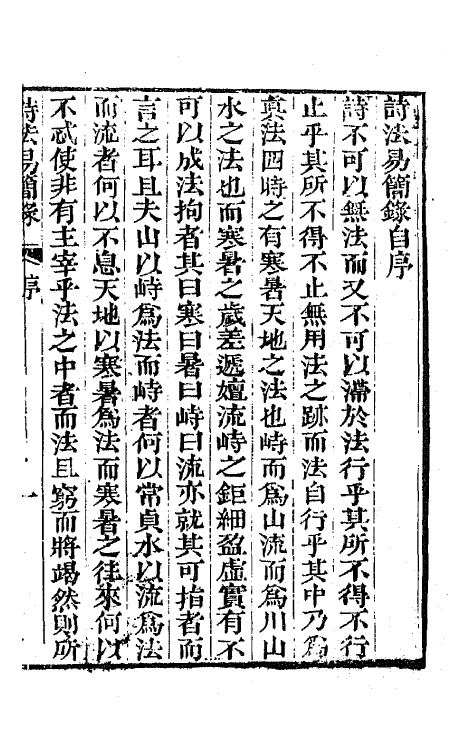 詩法易簡錄自序
詩不可以無法而又不可以滯於法行乎其所不得不行
止乎其所不得不止無用法之跡而法自行乎其中乃爲
眞法四時之有寒暑天地之法也峙而爲山流而爲川山
水之法也而寒暑之歲差遞嬗流峙之鉅細盈虛實有不
可以成法拘者其曰寒曰暑曰峙曰流亦就其可指者而
言之耳且夫山以峙爲法而峙者何以常貞水以流爲法
而流者何以不息天地以寒暑爲法而寒暑之往來何以
不忒使非有主宰乎法之中者而法且窮而將竭然則所
詩法易簡錄 序 一